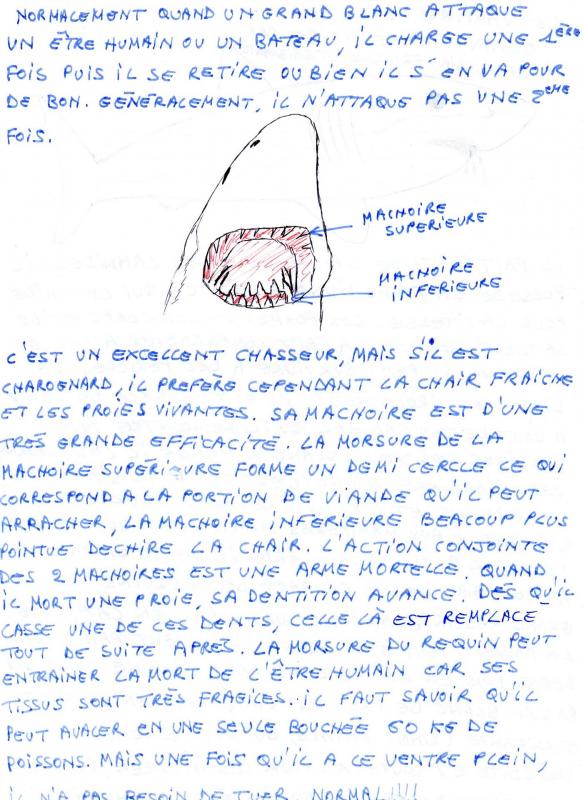 NORMALEMENT QUAND UN GRAND BLANC ATTAQUE
UN ÊTRE HUMAIN OU UN BATEAU, iL CHARGE UNE 1ÈRE
FOIS PUIS iL SE RETIRE OU BIEN iL S'EN VA POUR
DE BON. GÉNÉRALEMENT, iL N'ATTAQUE PAS UNE 2EME
FOIS.
MACHOIRE
SUPERIEURE
MACHOIRE
INFERIEURE
C'EST UN EXCELLENT CHASSEUR, MAIS S'iL EST
CHAROGNARD, iL PREFÈRE CEPENDANT LA CHAIR FRAICHE
ET LES PROIES VIVANTES. SA MACHOIRE EST D'UNE
TRES GRANDE EFFICACITÉ. LA MORSURE DE LA
MACHOIRE SUPÉRIEURE FORME UN DEMI CERCLE CE QUI
CORRESPOND A LA PORTION DE VIANDE QU'iL PEUT
ARRACHER, LA MACHOIRE INFERIEURE BEACOUP PLUS
POINTUE DECHIRE LA CHAIR. L'ACTION CONJOINTE
DES 2 MACHOIRES EST UNE ARME MORTELLE. QUAND
iL MORT UNE PROIE, SA DENTITION AVANCE. DÈS QU'iL
CASSE UNE DE CES DENTS, CELLE LÀ EST REMPLACÉ
TOUT DE SUITE APRES. LA MORSURE DU REQUIN PEUT
ENTRAINER LA MORT DE L'ÊTRE HUMAIN CAR SES
TISSUS SONT TRÈS FRAGILES. iL FAUT SAVOIR QU'iL
PEUT AVALER EN UNE SEULE BOUCHÉE 60 KG DE
POISSONS. MAIS UNE FOIS QU'iL A LE VENTRE PLEIN,
iL N'A PAS BESOIN DE TUER. NORMAL!!!!